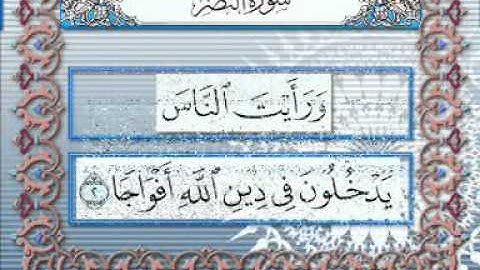 سورة النصر
وَرَأَيْتَ ٱلنَّاسَ
يَدْخُلُونَ فِى دِينِ ٱللَّهِ أَفْوَاجًا ٢